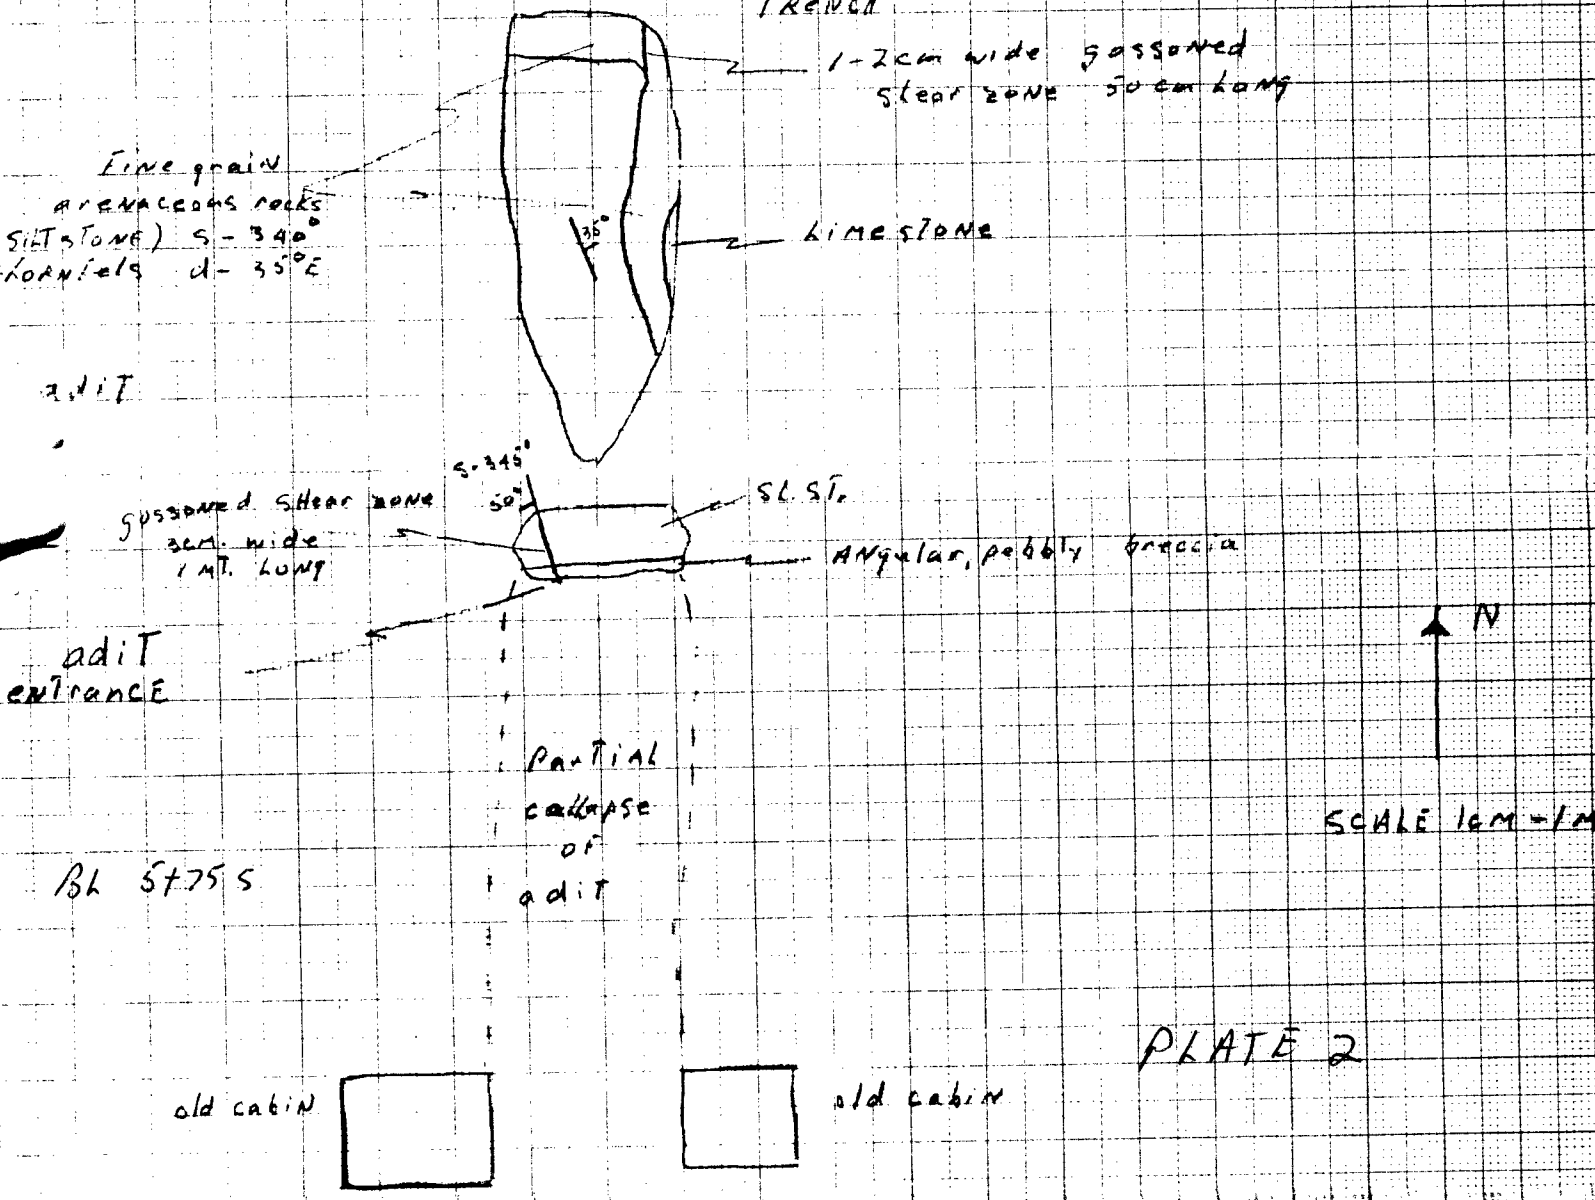 TRENCH
1-2cm wide gossoned
shear zone 50 cm Long
Fine grain
arenaceous rocks
SILTSTONE) S - 340°
Hornfels d - 35°E
35°
Limestone
adit
S-345°
50°
SL.ST.
gossoned shear zone
3cm. wide
1 MT. Long
Angular, pebbly breccia
adit
entrance
N
Partial
collapse
of
adit
SCALE 1cm - 1M
BL 5+75 S
PLATE 2
old cabin
old cabin